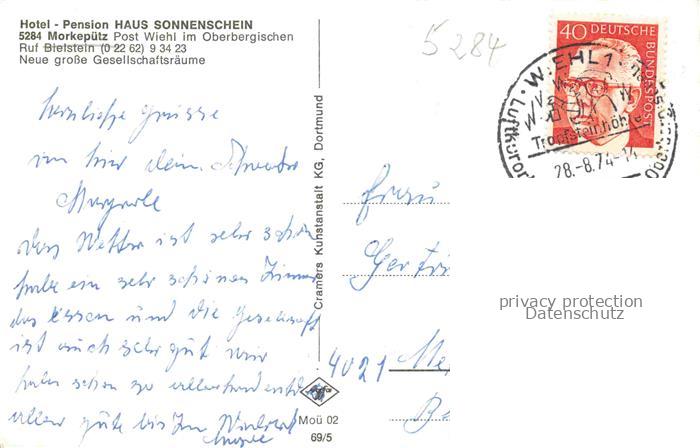 Hotel - Pension HAUS SONNENSCHEIN
5284 Morkepütz Post Wiehl im Oberbergischen
Ruf Bielstein (0 22 62) 9 34 23
Neue große Gesellschaftsräume
5284
40 DEUTSCHE BUNDESPOST
WIEHL 1
Luftkuror
Tropfsteinhöhle
28.-8.74-14
herzliche Grüsse
von hier dein
das Wetter ist sehr schön
habe ein sehr schönes Zimmer
das Essen und die Gesellschaft
ist auch sehr gut wir
haben schon so
alles gute bis zum
Cramers Kunstanstalt KG, Dortmund
Frau
Gertr
4021 Me
privacy protection
Datenschutz
Moü 02
69/5